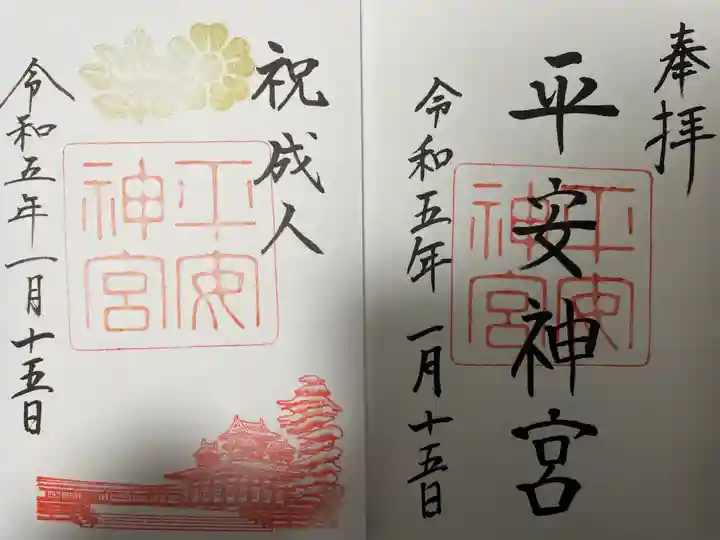 奉拝
平安神宮
平安神宮
令和五年一月十五日
祝成人
平安神宮
令和五年一月十五日